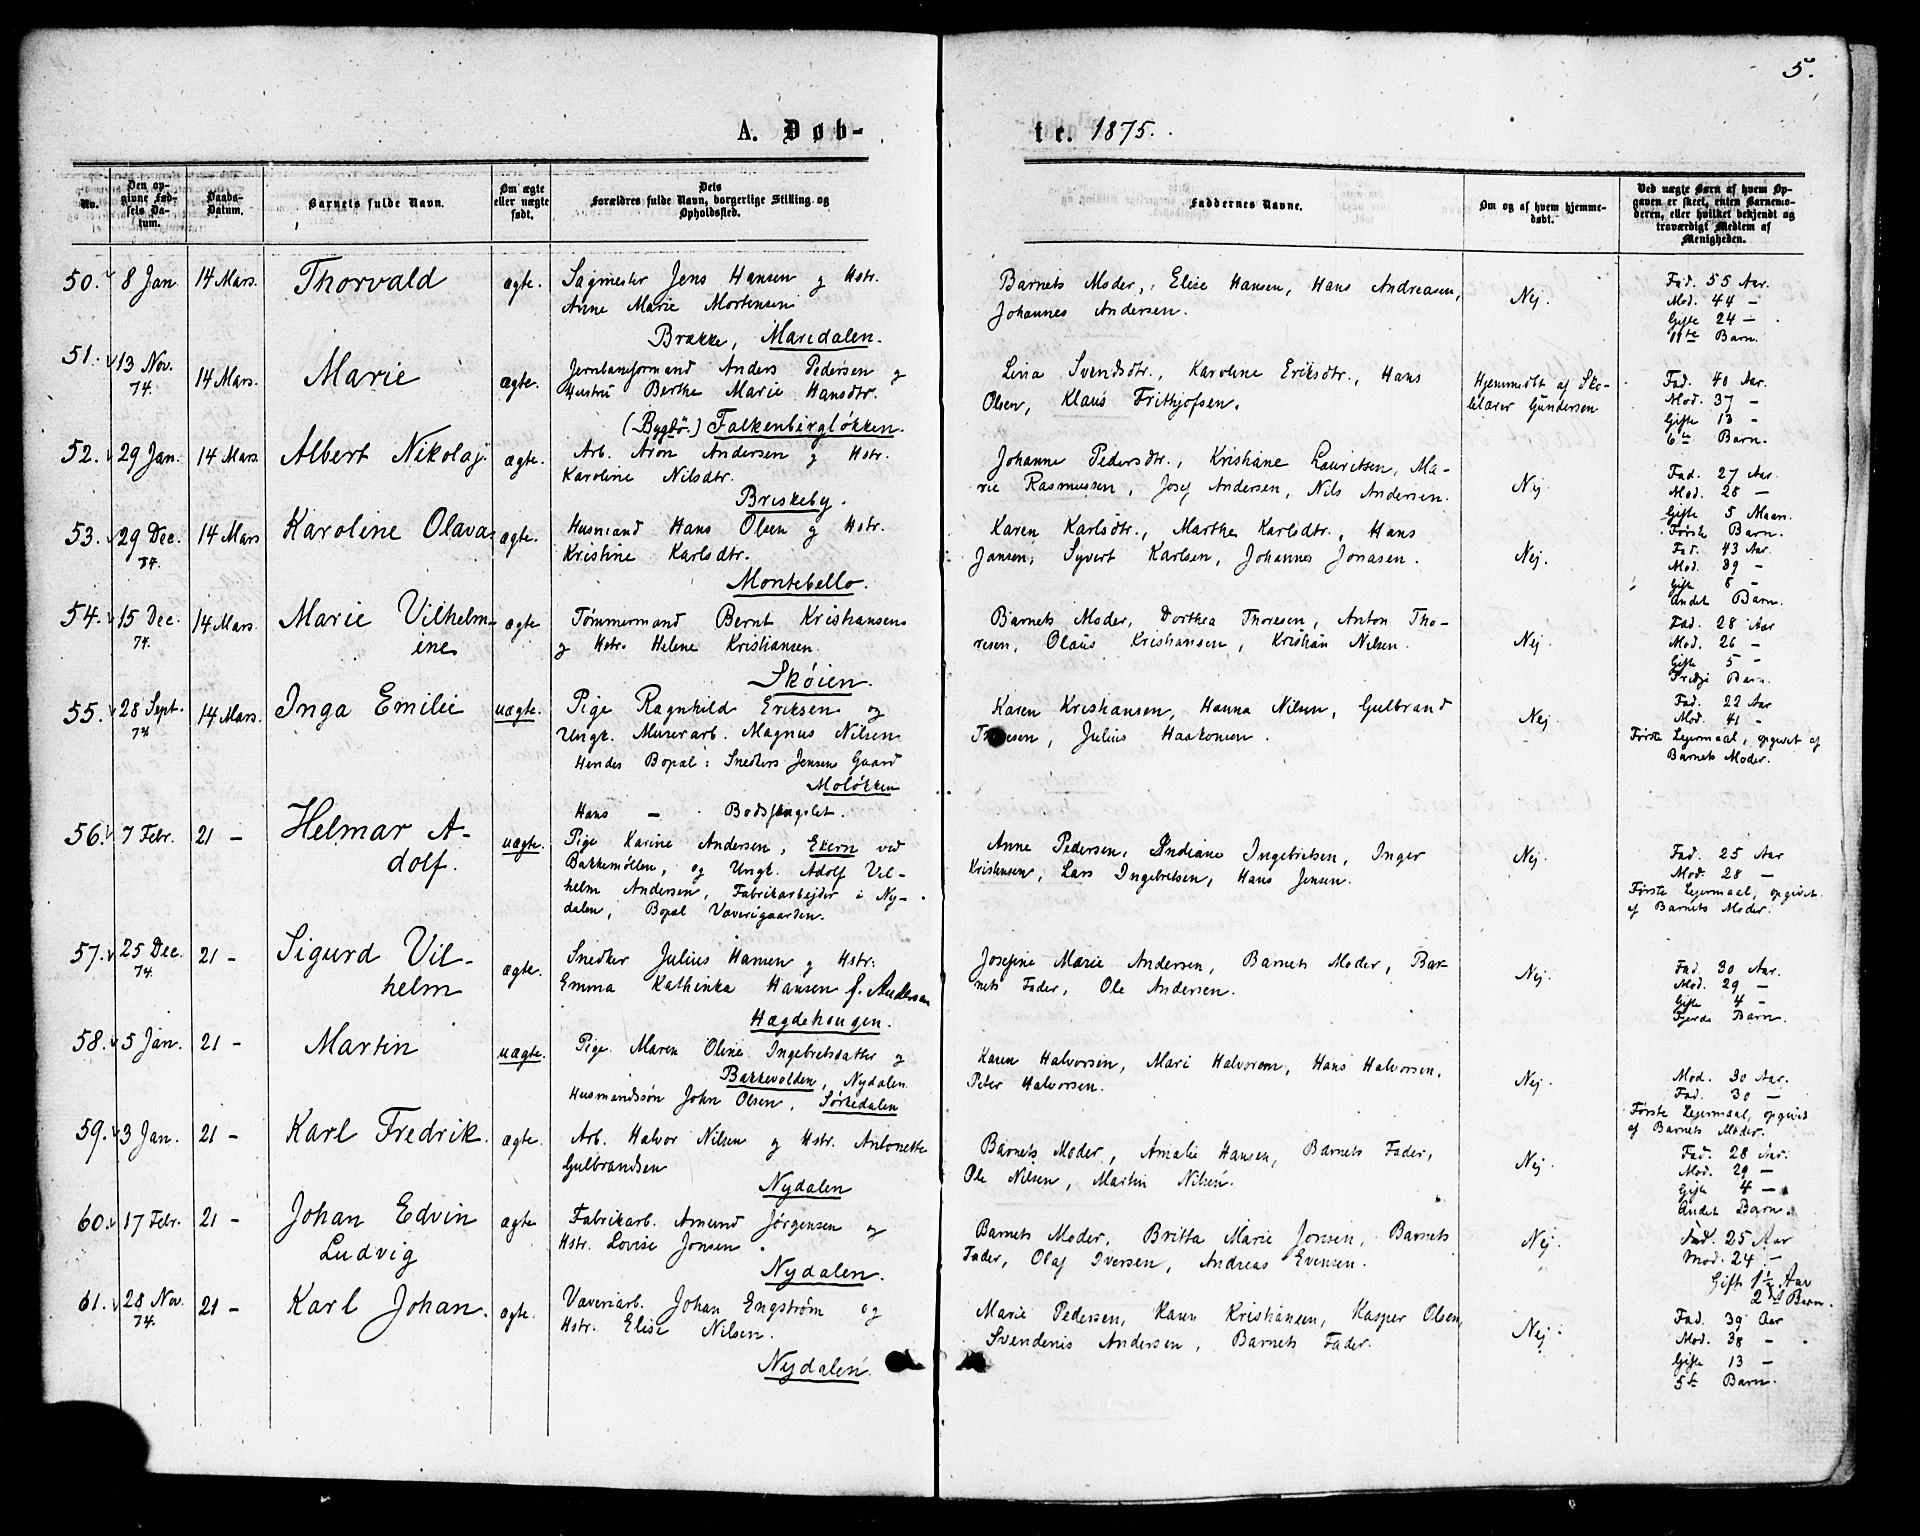 5.
A. Døb-
te. 1875.
Nr.
Den op-
givne Fød-
sels Da-
tum.
Daabs-
Datum.
Barnets fulde Navn.
Om ægte
eller uægte
født.
Dets
Forældres fulde Navn, borgerlige Stilling og
Opholdssted.
Faddernes Navne.
Om og af hvem hjemme-
døbt.
Ved uægte Børn af hvem Op-
gaven er skeet, enten Barnemo-
deren, eller hvilket bekjendt og
troværdigt Medlem af
Menigheden.
50. 8 Jan. 14 Mars. Thorvald ægte. Sagmester Jens Hansen og Hstr.
Anne Marie Mortensen
Brække, Maridalen.
Barnets Moder, Elise Hansen, Hans Andreasen,
Johannes Andersen.
Nej.
Fad. 55 Aar.
Mod. 44 –
Gifte 24 –
11te Barn.
51. 13 Nov. 74. 14 Mars. Marie ægte. Jernbaneformand Anders Pedersen og
Hustru Berthe Marie Hansdtr.
(Bygdø.) Falkenbergløkken.
Lina Svendsdtr., Karoline Eriksdtr., Hans
Olsen, Klaus Frithjofsen.
Hjemmedøbt af Sko-
lelærer Gundersen
Fad. 40 Aar.
Mod. 37 –
Gifte 13 –
6te Barn.
52. 29 Jan. 14 Mars. Albert Nikolaj. ægte. Arb. Aron Andersen og Hstr.
Karoline Nilsdtr.
Briskeby.
Johanne Pedersdtr., Kristiane Lauritsen, Ma-
rie Rasmussen, Josef Andersen, Nils Andersen.
Nej
Fad. 27 Aar.
Mod. 28 –
Gifte 5 Maan.
Første Barn.
53. 29 Dec. 74. 14 Mars Karoline Olava ægte. Husmand Hans Olsen og Hstr.
Kristine Karlsdtr.
Montebello.
Karen Karlsdtr., Marthe Karlsdtr., Hans
Jansen, Syvert Karlsen, Johannes Jonasen.
Nej.
Fad. 43 Aar.
Mod. 39 –
Gifte 8 –
Andet Barn.
54. 15 Dec. 74. 14 Mars. Marie Vilhelm-
ine ægte Tømmermand Bernt Kristiansen
og Hstr. Helene Kristiansen.
Skøien.
Barnets Moder, Dorthea Thoresen, Anton Tho-
resen, Olaus Kristiansen, Kristian Nilsen.
Nej
Fad. 28 Aar
Mod. 26 –
Gifte 5 –
Tredje Barn.
55. 28 Sept. 74 14 Mars. Inga Emilie uægte. Pige Ragnhild Eriksen og
Ungk. Murerarb. Magnus Nilsen
Hendes Bopæl: Snedkers Jensens Gaard
Moløkken
Hans – Bodsfængslet.
Karen Kristiansen, Hanna Nilsen, Gulbrand
Julius Haakonsen.
Nej
Fad. 22 Aar
Mod. 41 –
Første Lejermaal, opgivet af
Barnets Moder.
56. 7 Febr. 21 – Helmar A-
dolf. uægte. Pige Karine Andersen, Ekern ved
Bakkemøllen, og Ungk. Adolf Vil-
helm Andersen, Fabrikarbejder i Ny-
dalen, Bopæl Væverigaarden.
Anne Pedersen, Indiane Ingebretsen, Inger
Kristensen, Lars Ingebretsen, Hans Jensen.
Nej.
Fad. 25 Aar
Mod. 28 –
Første Lejermaal, opgivet
af Barnets Moder.
57. 25 Dec. 74. 21 – Sigurd Vil-
helm ægte. Snedker Julius Hansen og Hstr.
Emma Kathinka Hansen f. Andersen
Hægdehougen.
Josefine Marie Andersen, Barnets Moder, Bar-
nets Fader, Ole Andersen.
Nej.
Fad. 30 Aar.
Mod. 29 –
Gifte 4 –
Fjerde Barn.
58. 5 Jan. 21 – Martin uægte. Pige Maren Oline Ingebretsdatter og
Bakkevolden, Nydalen.
Husmandssøn John Olsen, Sørkedalen
Karen Halvorsen, Mari Halvorsen, Hans Halvorsen,
Peter Halvorsen.
Nej.
Mod. 30 Aar.
Fad. 30 –
Første Lejermaal, opgivet
af Barnets Moder.
59. 3 Jan. 21 – Karl Fredrik. ægte. Arb. Halvor Nilsen og Hstr. Antonette
Gulbrandsen
Nydalen
Barnets Moder, Amalie Hansen, Barnets Fader,
Ole Nilsen, Martin Nilsen.
Nej.
Fad. 28 Aar.
Mod. 29 –
Gifte 4 –
Andet Barn.
60. 17 Febr. 21 – Johan Edvin
Ludvig ægte Fabrikarb. Amund Jørgensen og
Hstr. Lovise Jonsen.
Nydalen.
Barnets Moder, Britta Marie Jonsen, Barnets
Fader, Olaf Iversen, Andreas Evensen.
Nej.
Fad. 25 Aar
Mod. 24 –
Gifte 1½ Aar
2det Barn.
61. 28 Nov. 74. 21 – Karl Johan. ægte. Væveriarb. Johan Engstrøm og
Hstr. Elise Nilsen.
Nydalen.
Marie Pedersen, Karen Kristiansen, Kasper Olsen,
Svendenis Andersen, Barnets Fader.
Nej.
Fad. 39 Aar
Mod. 38 –
Gifte 13 –
5te Barn.